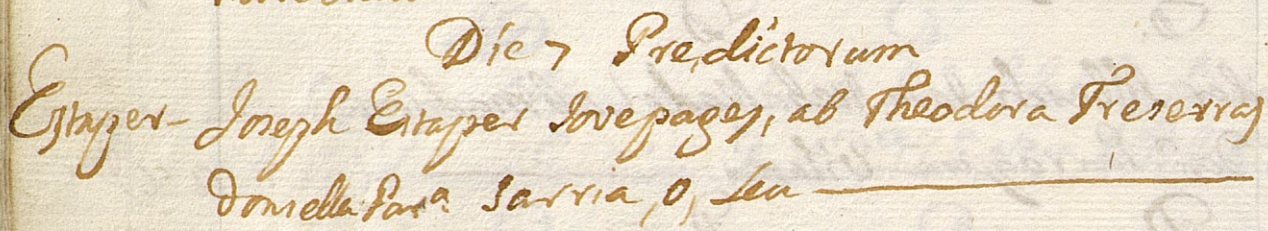 Die 7 Predictorum
Estaper - Joseph Estaper Jove pages, ab Theodora Treserras
Donsella Parª Sarria, o, Seu